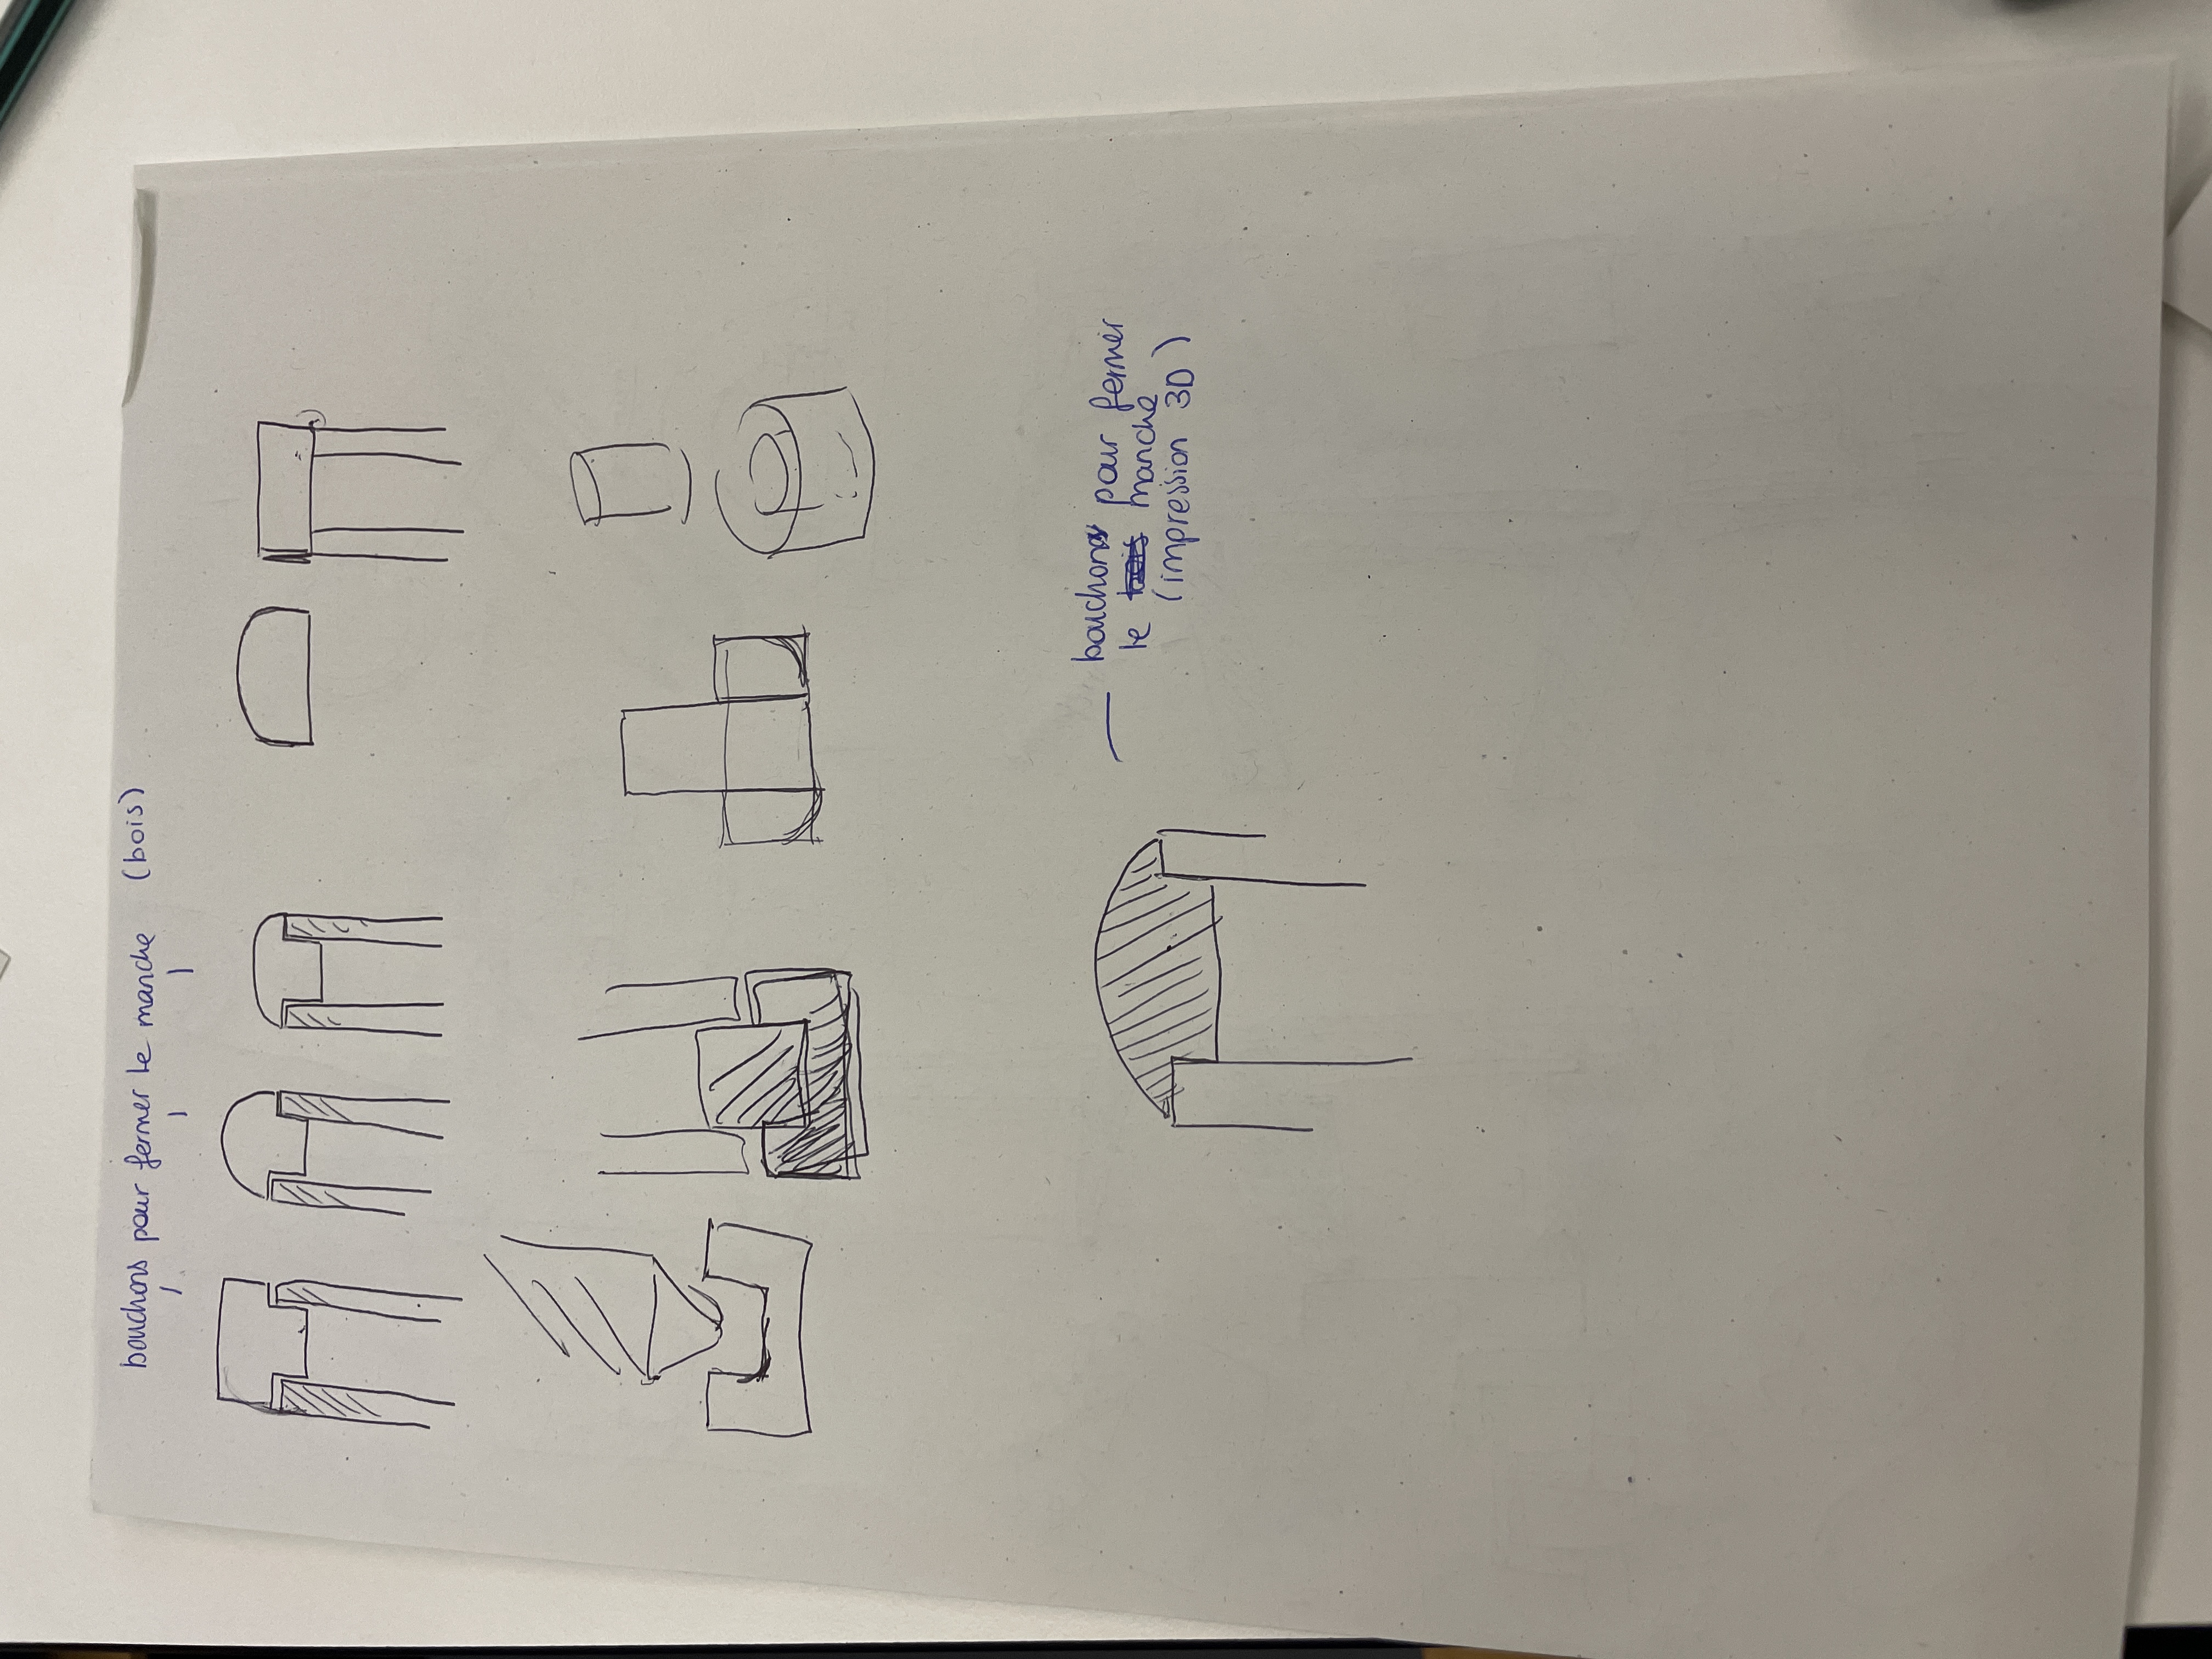 bouchons pour fermer le manche (bois)
bouchons pour fermer
le bois manche
(impression 3D)